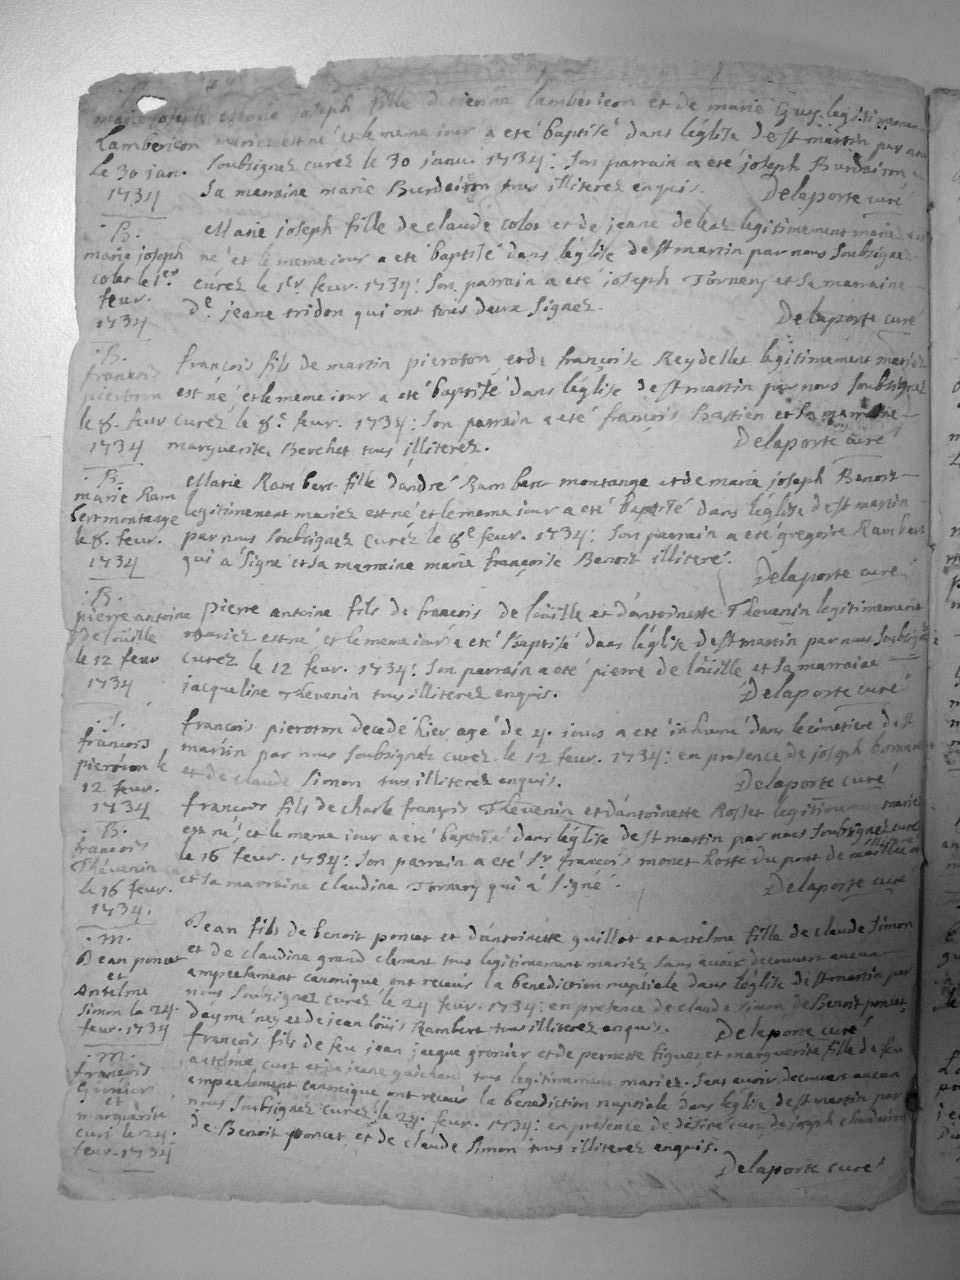 marie joseph fille d'etienne lambericon et de marie Guy legitimement
Lambericon mariez est né et le meme jour a eté baptisé dans l'église de st martin par nous
le 30 jan. soubsignez curez le 30 janu. 1734: son parrain a eté joseph Burdairon
1734 sa marraine marie Burdairon tous illiterez enquis. Delaporte curé
B. Marie joseph fille de claude colot et de jeane deléaz legitimement mariez
marie joseph né et le meme jour a eté baptisé dans l'église de st martin par nous soubsignez
colot le 1er curez le 1er feur. 1734: son parrain a eté joseph Tornery et sa marraine
feur.
1734 de jeane tridon qui ont tous deux signez. Delaporte curé
B. françois fils de martin pieroton et de françoise Reydellet légitimement mariez
françois
pieroton est né et le meme jour a eté baptisé dans l'église de st martin par nous soubsignez
le 8. feur curez le 8e feur. 1734: son parrain a eté françois Bastien et sa marraine
1734 marguerite Berchet tous illiterez. Delaporte curé
B. Marie Rambert fille d'andré Rambert montange et de marie joseph Benoit
marie Ram
bert montange legitimement mariez est né et le meme jour a eté baptisé dans l'église de st martin
le 8. feur. par nous soubsignez curéz le 8e feur. 1734: son parrain a eté grégoire Rambert
1734 qui a signe et sa marraine marie françoise Benoit illiteré. Delaporte curé
B.
pierre antoine pierre antoine fils de francois de loüille et d'antoinette Thevenin legitimement
de loüille mariez est né et le meme jour a eté baptisé dans l'église de st martin par nous soubsignez
le 12 feur curez le 12 feur. 1734: son parrain a eté pierre de loüille et sa marraine
1734 jacqueline Thevenin tous illiterez enquis. Delaporte curé
I. françois pieroton decedé hier agé de 4. jours a eté inhumé dans le cimetiere de st
françois martin par nous soubsignez curez le 12 feur. 1734: en presence de joseph
pieroton le
12 feur. et de claude simon tous illiterez enquis. Delaporte curé
1734 francois fils de charle françois Thevenin et d'antoinette Rosset legitimement mariez
B. est né et le meme jour a eté baptisé dans l'église de st martin par nous soubsignez curé
francois
Thévenin le 16 feur. 1734: son parrain a eté sr. françois monet hoste du pont de maillat
le 16 feur. et sa marraine claudine Tornery qui a signé. Delaporte curé
1734.
m. Jean fils de benoit poncet et d'antoinette guillot et antelme fille de claude simon
Jean poncet et de claudine grand clement tous legitimement mariez sans avoir decouvert aucun
et ampechement canonique ont receus la benediction nuptiale dans l'église de st martin par
Antelme nous soubsignez curez le 24 feur. 1734: en presence de claude simon de Benoit poncet
simon le 24. d'aymé ney et de jean loüis Rambert tous illiterez enquis. Delaporte curé
feur. 1734
m. François fils de feu jean jacque gronier et de pernette figuet et marguerite fille de feu
françois antelme curt et de jeane gaichon tous legitimement mariez. sans avoir decouvert aucun
gronier ampechement canonique ont receus la benediction nuptiale dans l'église de st martin par
et
marguerite nous soubsignez curez le 24. feur. 1734: en presence de désiré curt, de joseph
curt le 24. de Benoit poncet et de claude simon tous illiterez enquis.
feur. 1734 Delaporte curé